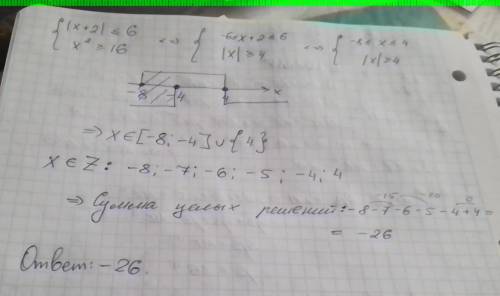 { |x+2| ≤ 6 <=> { -6≤x+2≤6 <=> { -8≤x≤4
x² ≥ 16 |x| ≥ 4 |x| ≥ 4
-8 -4 4 x
=> x∈[-8; -4]∪{4}
x∈Z: -8; -7; -6; -5; -4; 4
=> Сумма целых решений: -8-7-6-5-4+4=
= -26
Ответ: -26.